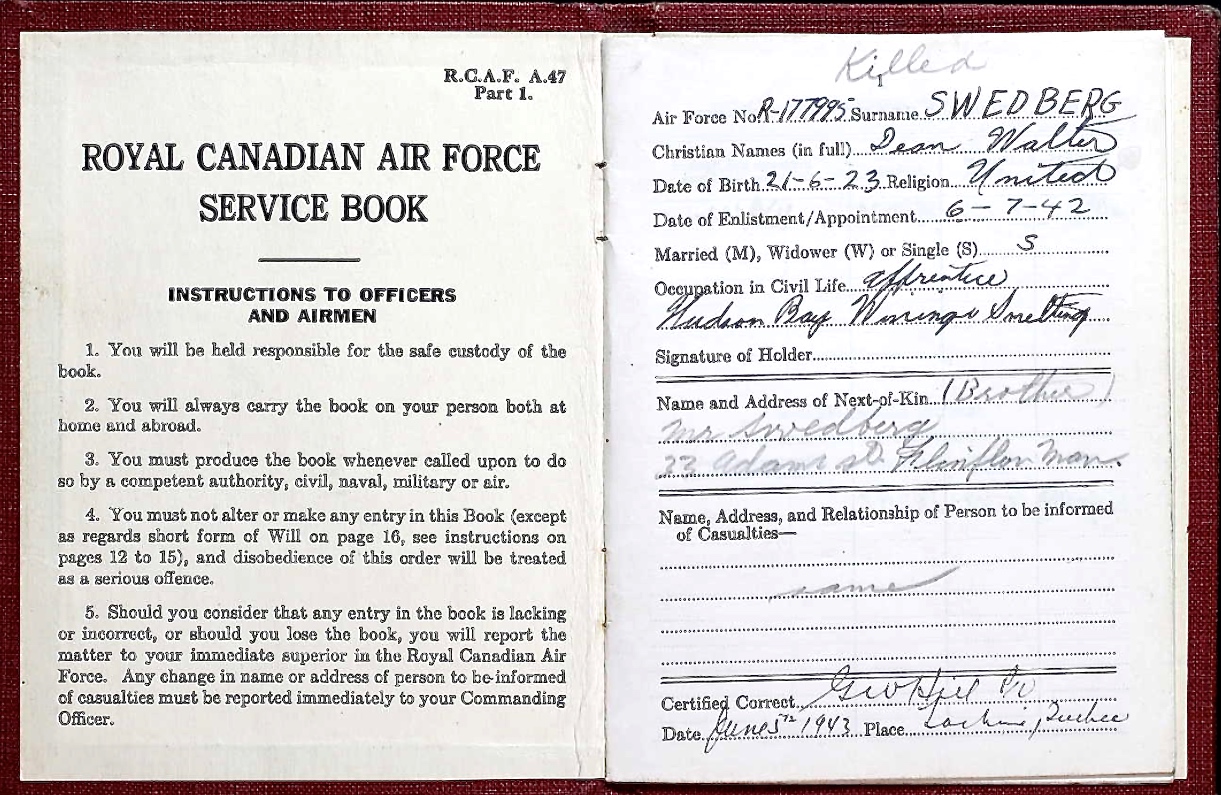 R.C.A.F. A.47
Part 1.
ROYAL CANADIAN AIR FORCE
SERVICE BOOK
INSTRUCTIONS TO OFFICERS
AND AIRMEN
1. You will be held responsible for the safe custody of the
book.
2. You will always carry the book on your person both at
home and abroad.
3. You must produce the book whenever called upon to do
so by a competent authority, civil, naval, military or air.
4. You must not alter or make any entry in this Book (except
as regards short form of Will on page 16, see instructions on
pages 12 to 15), and disobedience of this order will be treated
as a serious offence.
5. Should you consider that any entry in the book is lacking
or incorrect, or should you lose the book, you will report the
matter to your immediate superior in the Royal Canadian Air
Force. Any change in name or address of person to be informed
of casualties must be reported immediately to your Commanding
Officer.
Killed
Air Force No. R-177995 Surname SWEDBERG
Christian Names (in full) Dean Walter
Date of Birth 21-6-23 Religion United
Date of Enlistment/Appointment 6-7-42
Married (M), Widower (W) or Single (S) S
Occupation in Civil Life apprentice
Hudson Bay Mining & Smelting
Signature of Holder
Name and Address of Next-of-Kin (Brother)
Mr Swedberg
Adams St. Flinflon Man.
Name, Address, and Relationship of Person to be informed
of Casualties—
same
Certified Correct
Date June 5th 1943 Place Lachine, Quebec